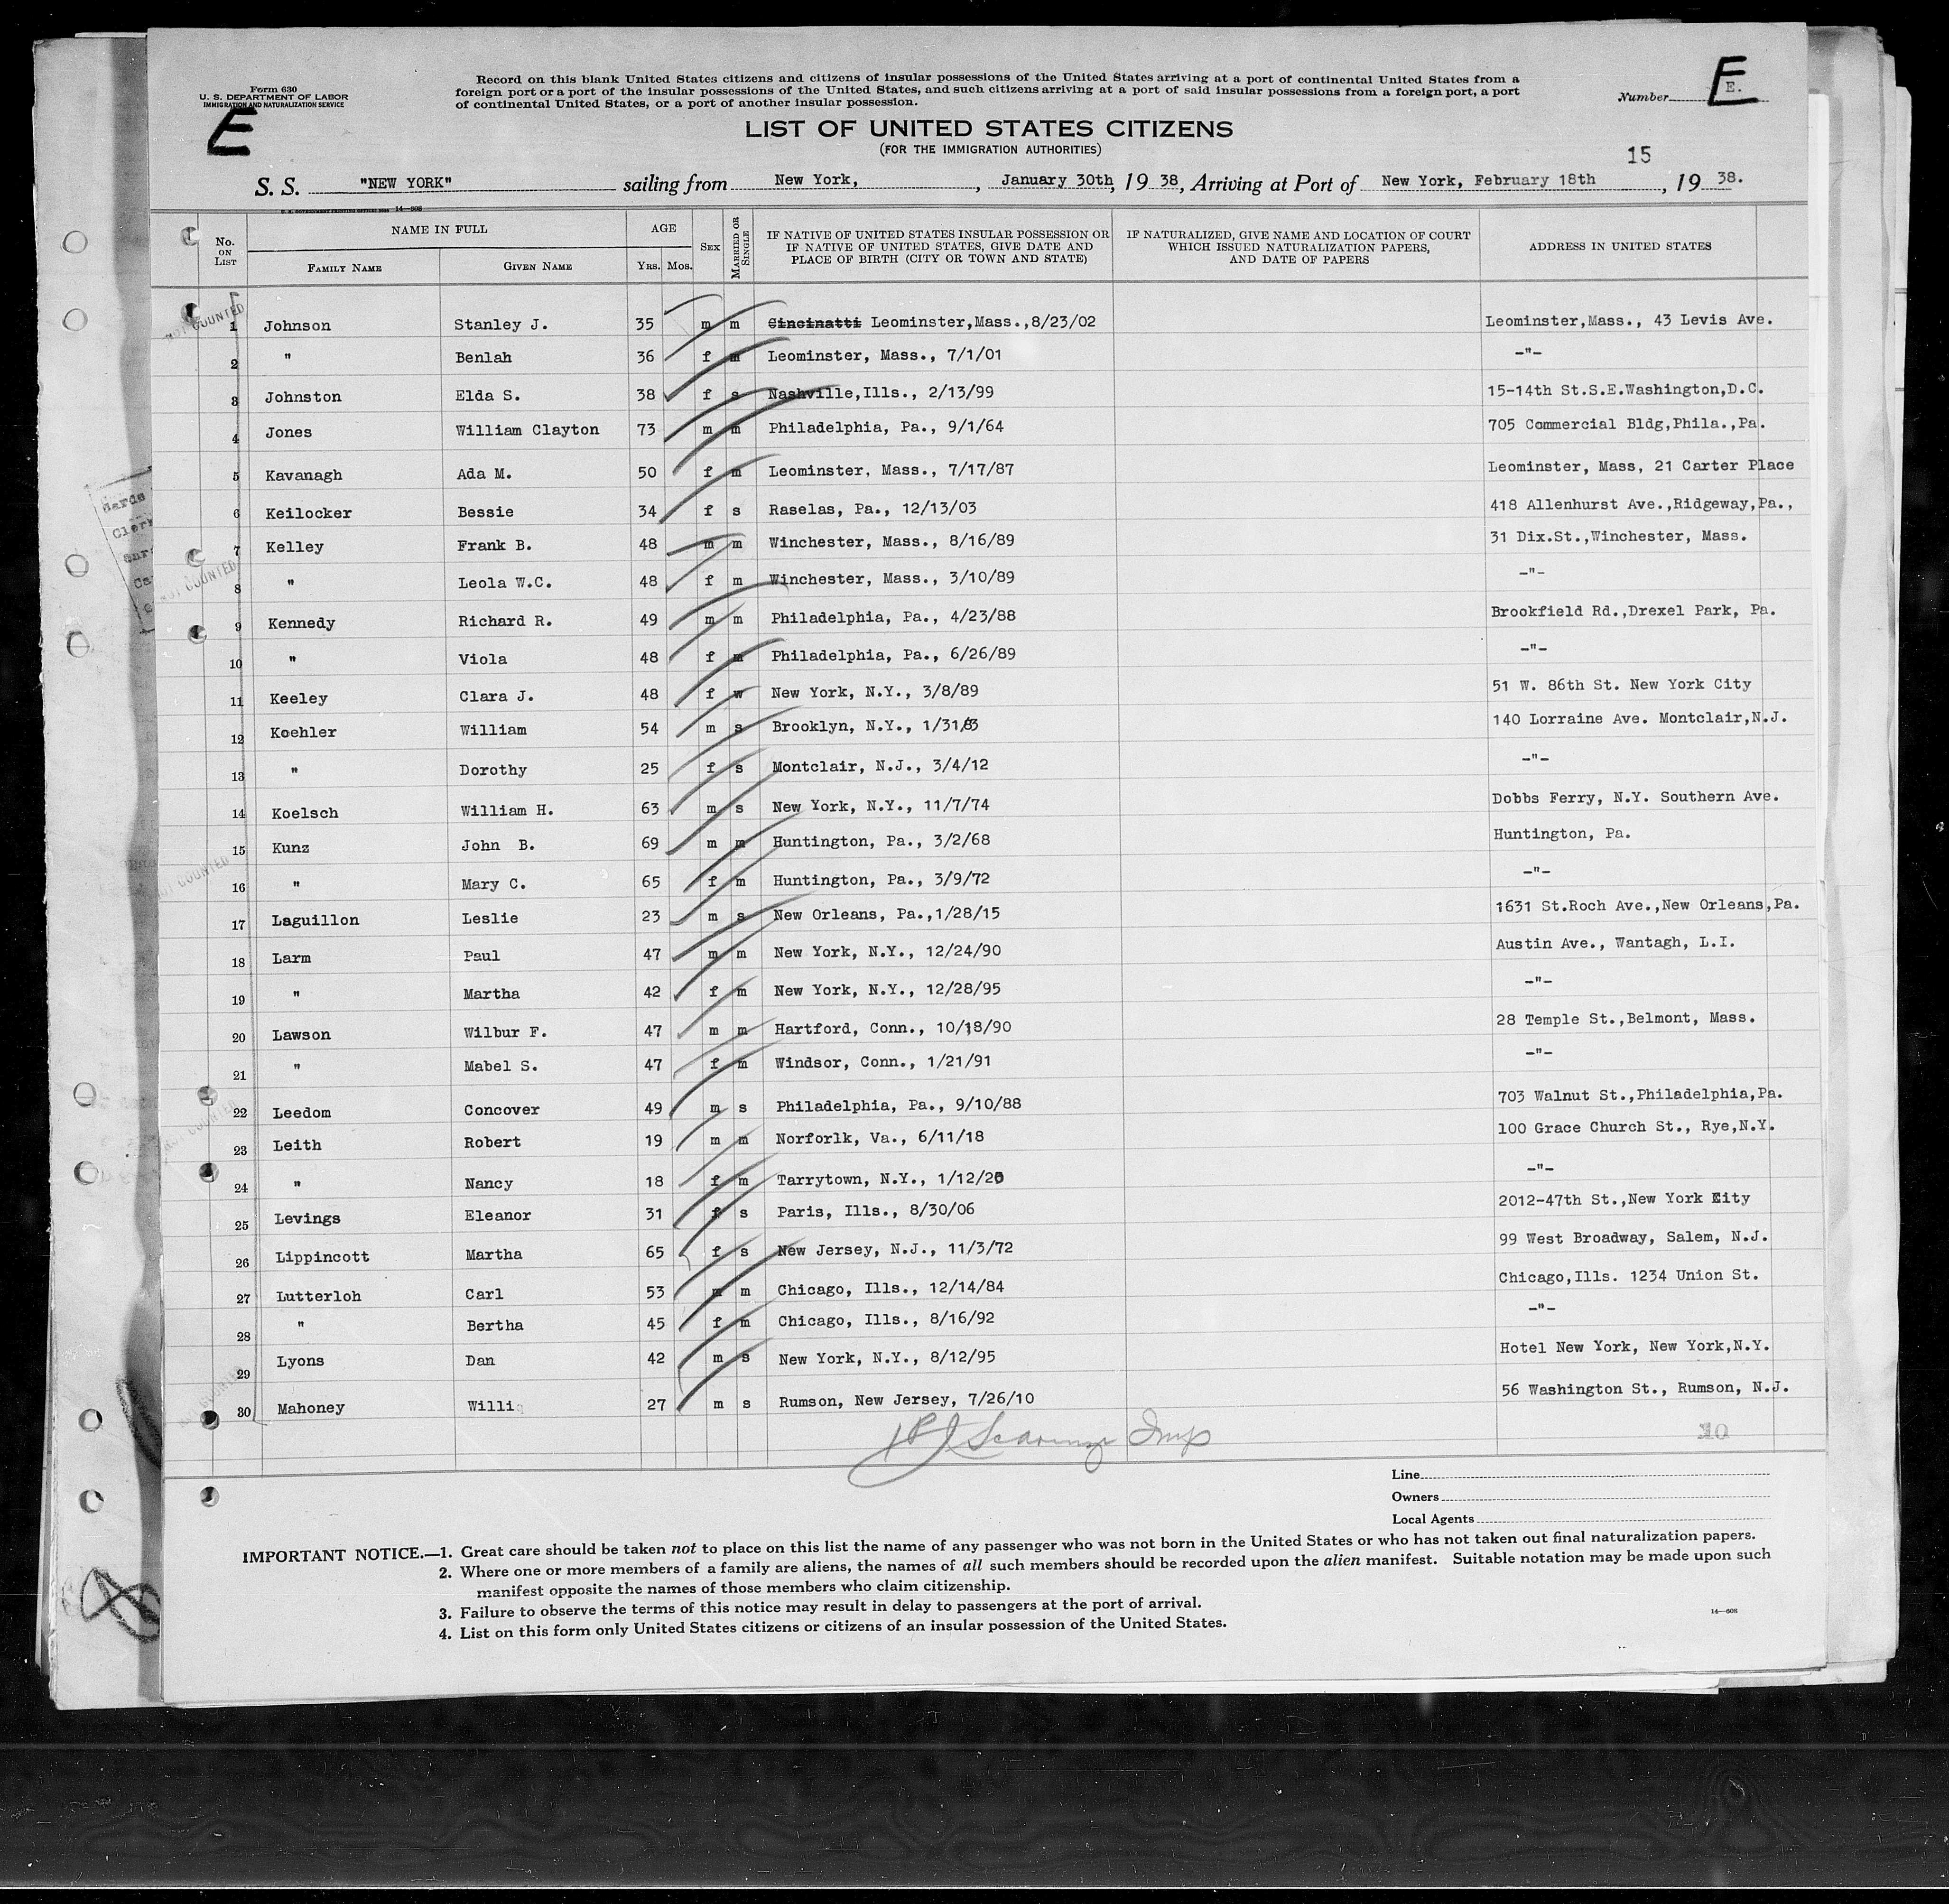 Form 630
U. S. DEPARTMENT OF LABOR
IMMIGRATION AND NATURALIZATION SERVICE
E
Record on this blank United States citizens and citizens of insular possessions of the United States arriving at a port of continental United States from a
foreign port or a port of the insular possessions of the United States, and such citizens arriving at a port of said insular possessions from a foreign port, a port
of continental United States, or a port of another insular possession.
Number E. E
LIST OF UNITED STATES CITIZENS
(FOR THE IMMIGRATION AUTHORITIES)
15
S. S. "NEW YORK" sailing from New York, , January 30th, 19 38, Arriving at Port of New York, February 18th , 19 38.
14—608
No. ON LIST NAME IN FULL FAMILY NAME GIVEN NAME AGE YRS. MOS. SEX MARRIED OR SINGLE IF NATIVE OF UNITED STATES INSULAR POSSESSION OR IF NATIVE OF UNITED STATES, GIVE DATE AND PLACE OF BIRTH (CITY OR TOWN AND STATE) IF NATURALIZED, GIVE NAME AND LOCATION OF COURT WHICH ISSUED NATURALIZATION PAPERS, AND DATE OF PAPERS ADDRESS IN UNITED STATES
NOT COUNTED
1 Johnson Stanley J. 35 m m Cincinatti Leominster,Mass.,8/23/02 Leominster,Mass., 43 Levis Ave.
2 " Benlah 36 f m Leominster, Mass., 7/1/01 -"-
3 Johnston Elda S. 38 f s Nashville,Ills., 2/13/99 15-14th St.S.E.Washington,D.C.
4 Jones William Clayton 73 m m Philadelphia, Pa., 9/1/64 705 Commercial Bldg,Phila.,Pa.
5 Kavanagh Ada M. 50 f m Leominster, Mass., 7/17/87 Leominster, Mass, 21 Carter Place
6 Keilocker Bessie 34 f s Raselas, Pa., 12/13/03 418 Allenhurst Ave.,Ridgeway,Pa.,
7 Kelley Frank B. 48 m m Winchester, Mass., 8/16/89 31 Dix.St.,Winchester, Mass.
NOT COUNTED
8 " Leola W.C. 48 f m Winchester, Mass., 3/10/89 -"-
9 Kennedy Richard R. 49 m m Philadelphia, Pa., 4/23/88 Brookfield Rd.,Drexel Park, Pa.
10 " Viola 48 f m Philadelphia, Pa., 6/26/89 -"-
11 Keeley Clara J. 48 f w New York, N.Y., 3/8/89 51 W. 86th St. New York City
12 Koehler William 54 m s Brooklyn, N.Y., 1/31/83 140 Lorraine Ave. Montclair,N.J.
13 " Dorothy 25 f s Montclair, N.J., 3/4/12 -"-
14 Koelsch William H. 63 m s New York, N.Y., 11/7/74 Dobbs Ferry, N.Y. Southern Ave.
15 Kunz John B. 69 m m Huntington, Pa., 3/2/68 Huntington, Pa.
NOT COUNTED
16 " Mary C. 65 f m Huntington, Pa., 3/9/72 -"-
17 Laguillon Leslie 23 m s New Orleans, Pa.,1/28/15 1631 St.Roch Ave.,New Orleans,Pa.
18 Larm Paul 47 m m New York, N.Y., 12/24/90 Austin Ave., Wantagh, L.I.
19 " Martha 42 f m New York, N.Y., 12/28/95 -"-
20 Lawson Wilbur F. 47 m m Hartford, Conn., 10/18/90 28 Temple St.,Belmont, Mass.
21 " Mabel S. 47 f m Windsor, Conn., 1/21/91 -"-
22 Leedom Concover 49 m s Philadelphia, Pa., 9/10/88 703 Walnut St.,Philadelphia,Pa.
23 Leith Robert 19 m m Norforlk, Va., 6/11/18 100 Grace Church St., Rye,N.Y.
24 " Nancy 18 f m Tarrytown, N.Y., 1/12/20 -"-
25 Levings Eleanor 31 f s Paris, Ills., 8/30/06 2012-47th St.,New York City
26 Lippincott Martha 65 f s New Jersey, N.J., 11/3/72 99 West Broadway, Salem, N.J.
27 Lutterloh Carl 53 m m Chicago, Ills., 12/14/84 Chicago,Ills. 1234 Union St.
28 " Bertha 45 f m Chicago, Ills., 8/16/92 -"-
29 Lyons Dan 42 m s New York, N.Y., 8/12/95 Hotel New York, New York,N.Y.
30 Mahoney Willi 27 m s Rumson, New Jersey, 7/26/10 56 Washington St., Rumson, N.J.
Imp
Line
Owners
Local Agents
IMPORTANT NOTICE.—1. Great care should be taken not to place on this list the name of any passenger who was not born in the United States or who has not taken out final naturalization papers.
2. Where one or more members of a family are aliens, the names of all such members should be recorded upon the alien manifest. Suitable notation may be made upon such
manifest opposite the names of those members who claim citizenship.
3. Failure to observe the terms of this notice may result in delay to passengers at the port of arrival.
4. List on this form only United States citizens or citizens of an insular possession of the United States.
14—608